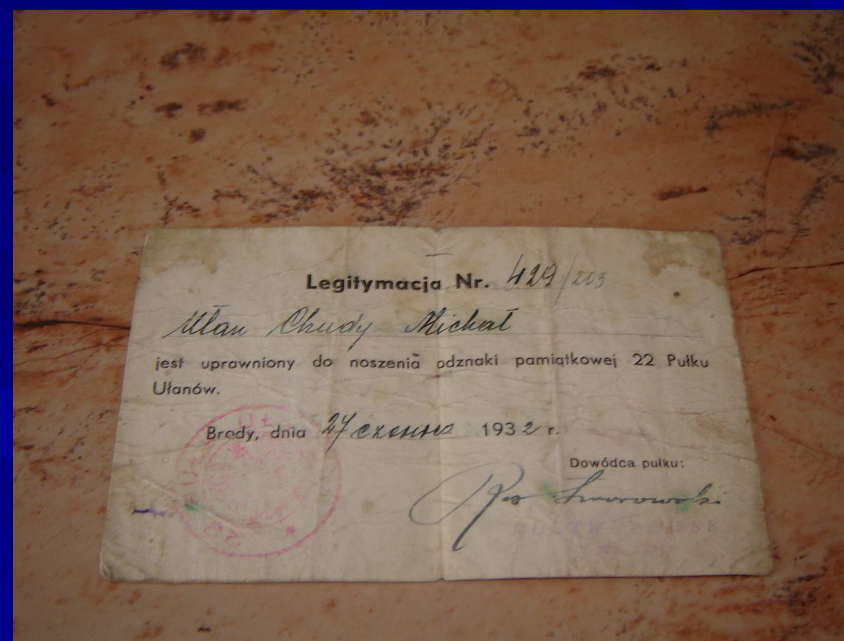 Legitymacja Nr. 429/223
Ułan Chudy Michał
jest uprawniony do noszenia odznaki pamiątkowej 22 Pułku
Ułanów.
Brody, dnia 27 czerwca 1932 r.
Dowódca pułku: